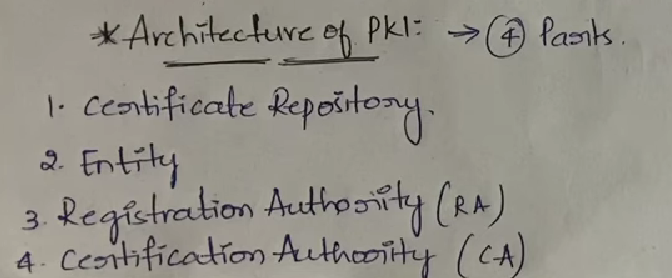 * Architecture of PKI: → ④ Parts.
1. Certificate Repository.
2. Entity
3. Registration Authority (RA)
4. Certification Authority (CA)